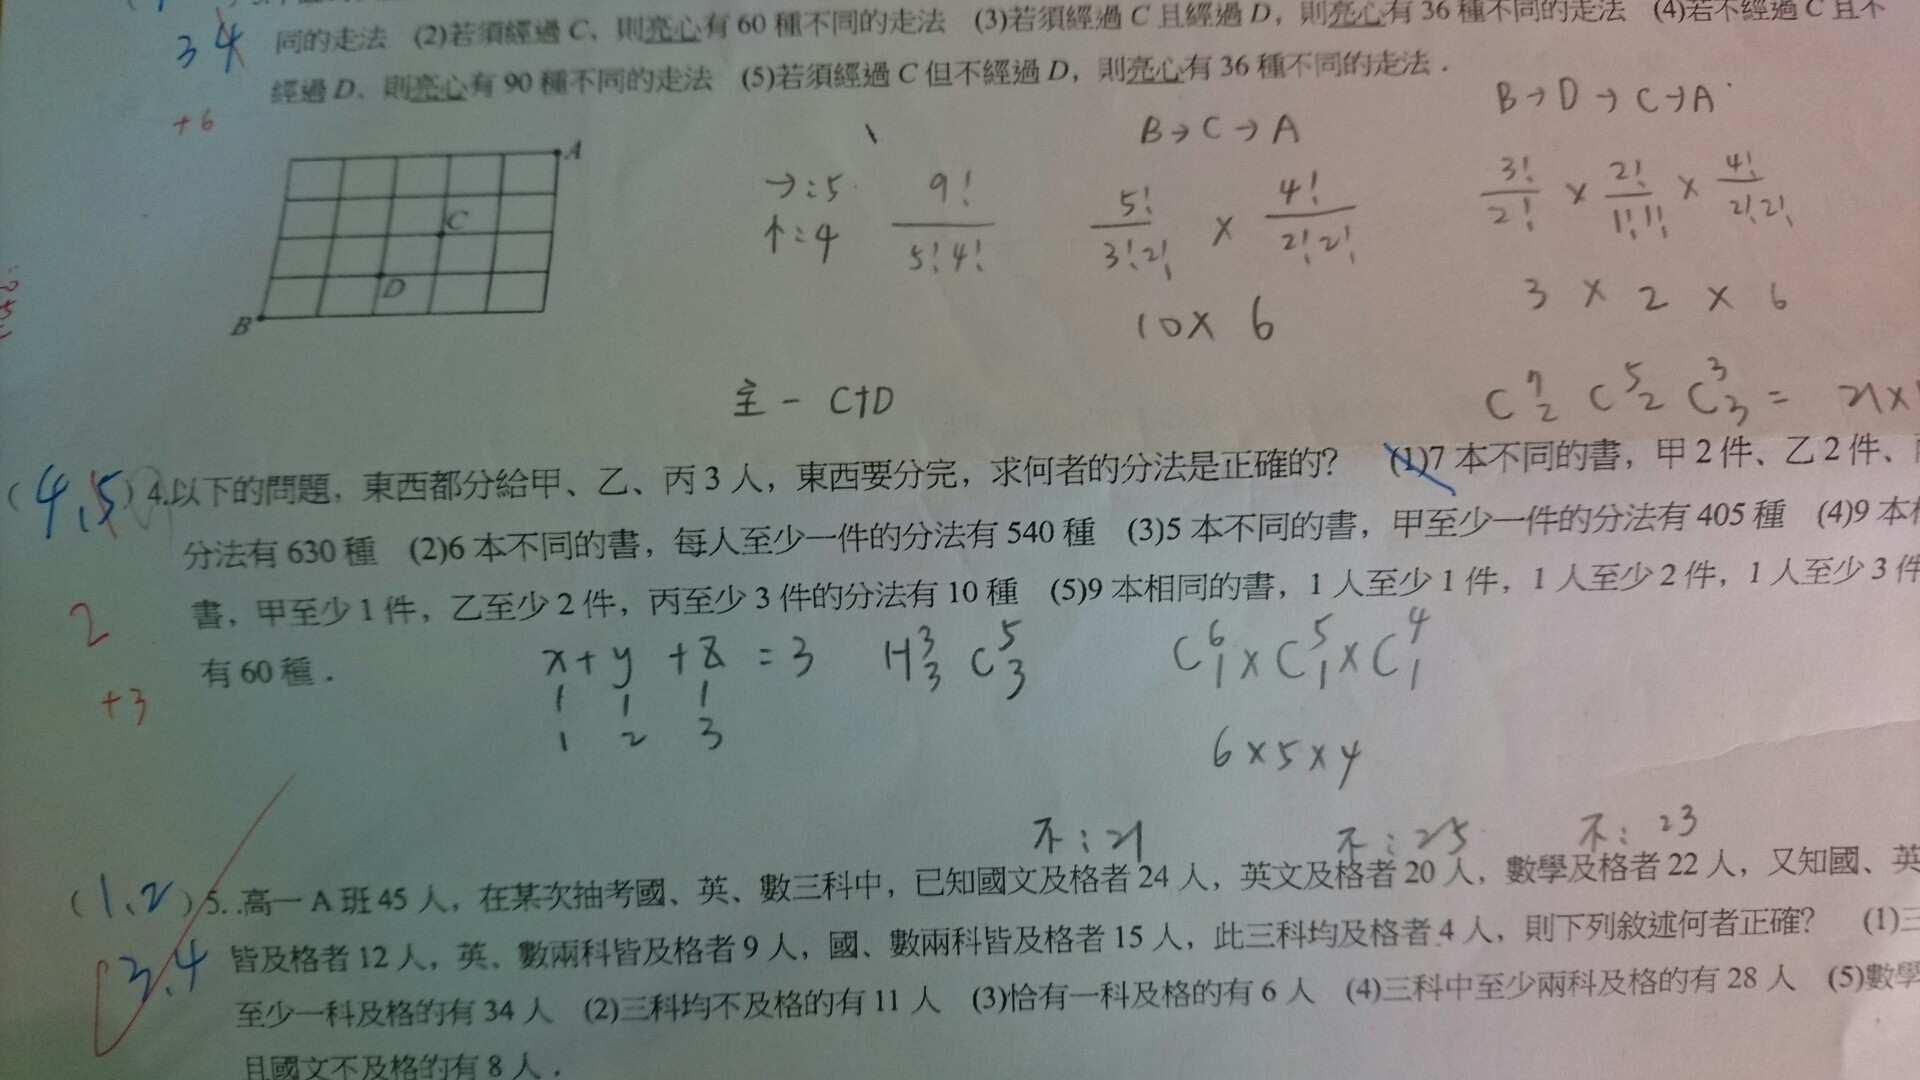 同的走法 (2)若須經過 C、則亮心有 60 種不同的走法 (3)若須經過 C 且經過 D，則亮心有 36 種不同的走法 (4)若不經過 C 且不
3 4
經過 D、則亮心有 90 種不同的走法 (5)若須經過 C 但不經過 D，則亮心有 36 種不同的走法．
+6
B→C→A
B→D→C→A
A
C
D
B
→:5
↑:4
9!
5!4!
5!
3!2!
×
4!
2!2!
10×6
3!
2!
×
2!
1!1!
×
4!
2!2!
3 × 2 × 6
主 - C+D
C 7 2 C 5 2 C 3 3 = 21×
(4,5) 4.以下的問題，東西都分給甲、乙、丙 3 人，東西要分完，求何者的分法是正確的? (1)7 本不同的書，甲 2 件、乙 2 件、
分法有 630 種 (2)6 本不同的書，每人至少一件的分法有 540 種 (3)5 本不同的書，甲至少一件的分法有 405 種 (4)9 本
書，甲至少 1 件，乙至少 2 件，丙至少 3 件的分法有 10 種 (5)9 本相同的書，1 人至少 1 件，1 人至少 2 件，1 人至少 3 件
有 60 種．
2
+3
x+y+z=3 H 3 3 C 5 3
1 1 1
1 2 3
C 6 1 × C 5 1 × C 4 1
6×5×4
不:21 不:25 不:23
(1,2) 5..高一 A 班 45 人，在某次抽考國、英、數三科中，已知國文及格者 24 人，英文及格者 20 人，數學及格者 22 人，又知國、英
3,4
皆及格者 12 人，英、數兩科皆及格者 9 人，國、數兩科皆及格者 15 人，此三科均及格者 4 人，則下列敘述何者正確? (1)三
至少一科及格的有 34 人 (2)三科均不及格的有 11 人 (3)恰有一科及格的有 6 人 (4)三科中至少兩科及格的有 28 人 (5)數學
且國文不及格的有 8 人．